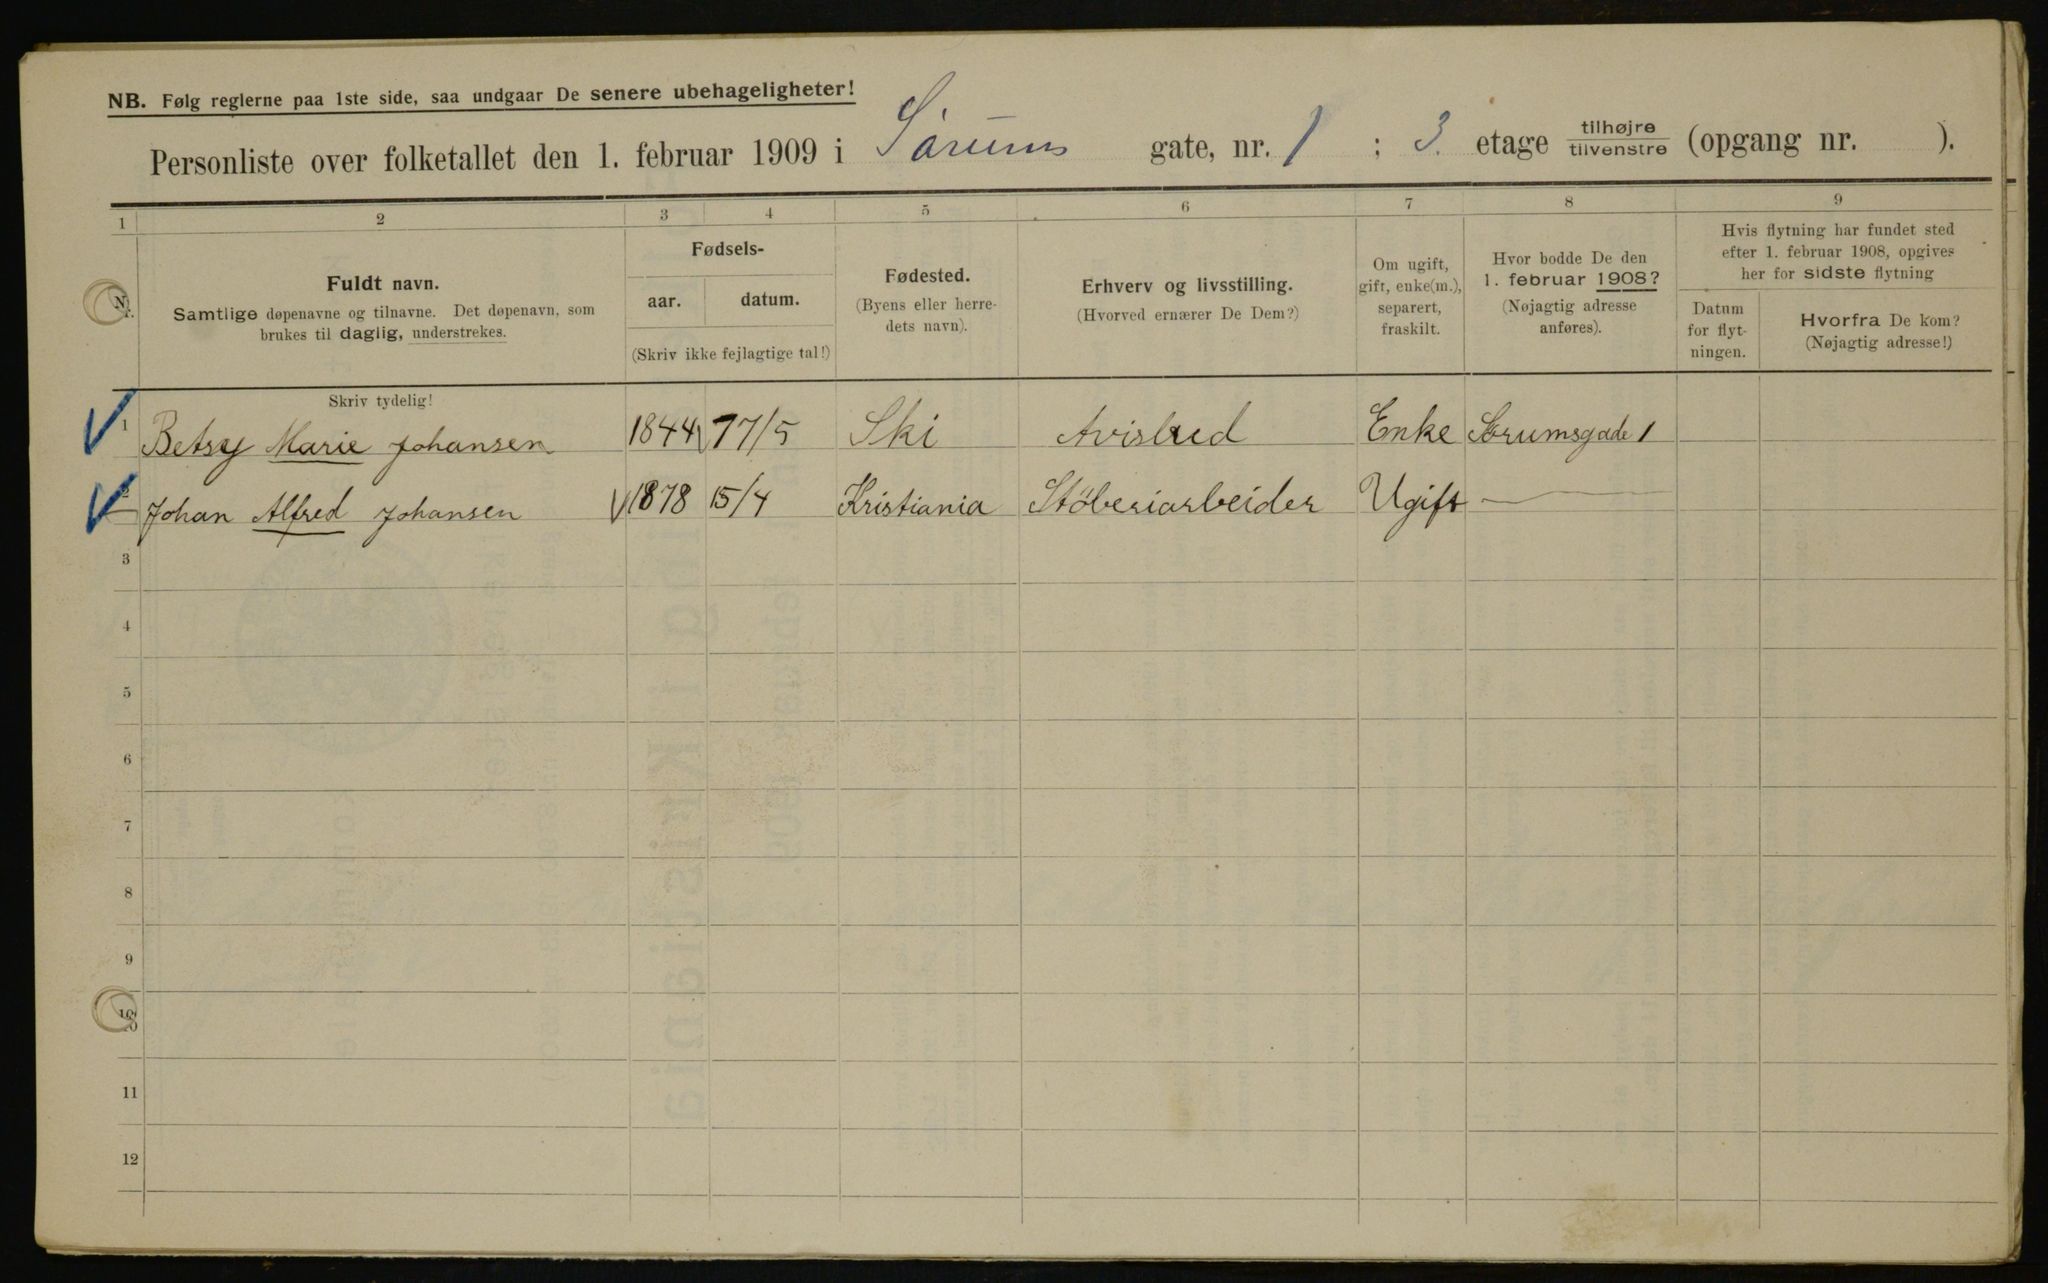 NB. Følg reglerne paa 1ste side, saa undgaar De senere ubehageligheter!
Personliste over folketallet den 1. februar 1909 i Sørums gate, nr. 1 ; 3. etage tilhøjre / tilvenstre (opgang nr. ).
1 2 3 4 5 6 7 8 9
Nr.
Fuldt navn.
Samtlige døpenavne og tilnavne. Det døpenavn, som
brukes til daglig, understrekes.
Fødsels-
aar. datum.
(Skriv ikke fejlagtige tal!)
Fødested.
(Byens eller herre-
dets navn).
Erhverv og livsstilling.
(Hvorved ernærer De Dem?)
Om ugift,
gift, enke(m.),
separert,
fraskilt.
Hvor bodde De den
1. februar 1908?
(Nøjagtig adresse
anføres).
Hvis flytning har fundet sted
efter 1. februar 1908, opgives
her for sidste flytning
Datum
for flyt-
ningen.
Hvorfra De kom?
(Nøjagtig adresse!)
Skriv tydelig!
1 Betsy Marie Johansen 1844 17/5 Ski Avisbud Enke Sørumsgade 1
2 Johan Alfred Johansen 1878 15/4 Kristiania Støberiarbeider Ugift —
3
4
5
6
7
8
9
10
11
12